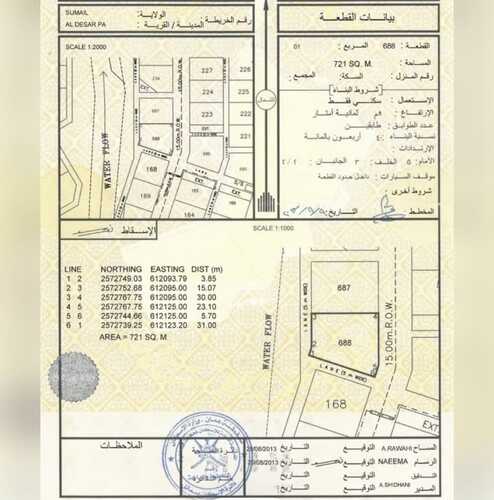 SUMAIL
الولاية:
AL DESAR PA
المدينة / القرية:
رقم الخريطة
بيانات القطعة
SCALE 1:2000
القطعة: 688 المربع: 01
المساحة: 721 SQ. M.
رقم المنزل: السكة: المجمع:
شروط البناء
الإستعمال: سكني فقط
الإرتفاع: ٨م ثمانية أمتار
عدد الطوابق: طابقين
نسبة البناء: ٤٠ أربعون بالمائة
الإرتدادات:
الأمام: ٥ الخلف: ٣ الجانبان: ٢/٤
موقف السيارات: داخل حدود القطعة
شروط أخرى:
المخطط: التاريخ:
الشمال
WATER FLOW
227
226
224
15.00m.R.O.W.
LANE
168
169
164
EXT.
الإسقاط
SCALE 1:1000
LINE NORTHING EASTING DIST (m)
1 2 2572749.03 612093.79 3.85
2 3 2572752.68 612095.00 15.07
3 4 2572767.75 612095.00 30.00
4 5 2572767.75 612125.00 23.10
5 6 2572744.66 612125.00 5.70
6 1 2572739.25 612123.20 31.00
AREA = 721 SQ. M.
WATER FLOW
LANE (5 m WIDE)
687
688
3
2
1
6
5
15.00m.R.O.W.
LANE (5 m WIDE)
168
EXT
الملاحظات
26/08/2013 التاريخ التوقيع A.RAWAHI المساح
التاريخ التوقيع NAEEMA الرسام
التاريخ التوقيع التدقيق
التاريخ التوقيع A.SHIDHANI المدير